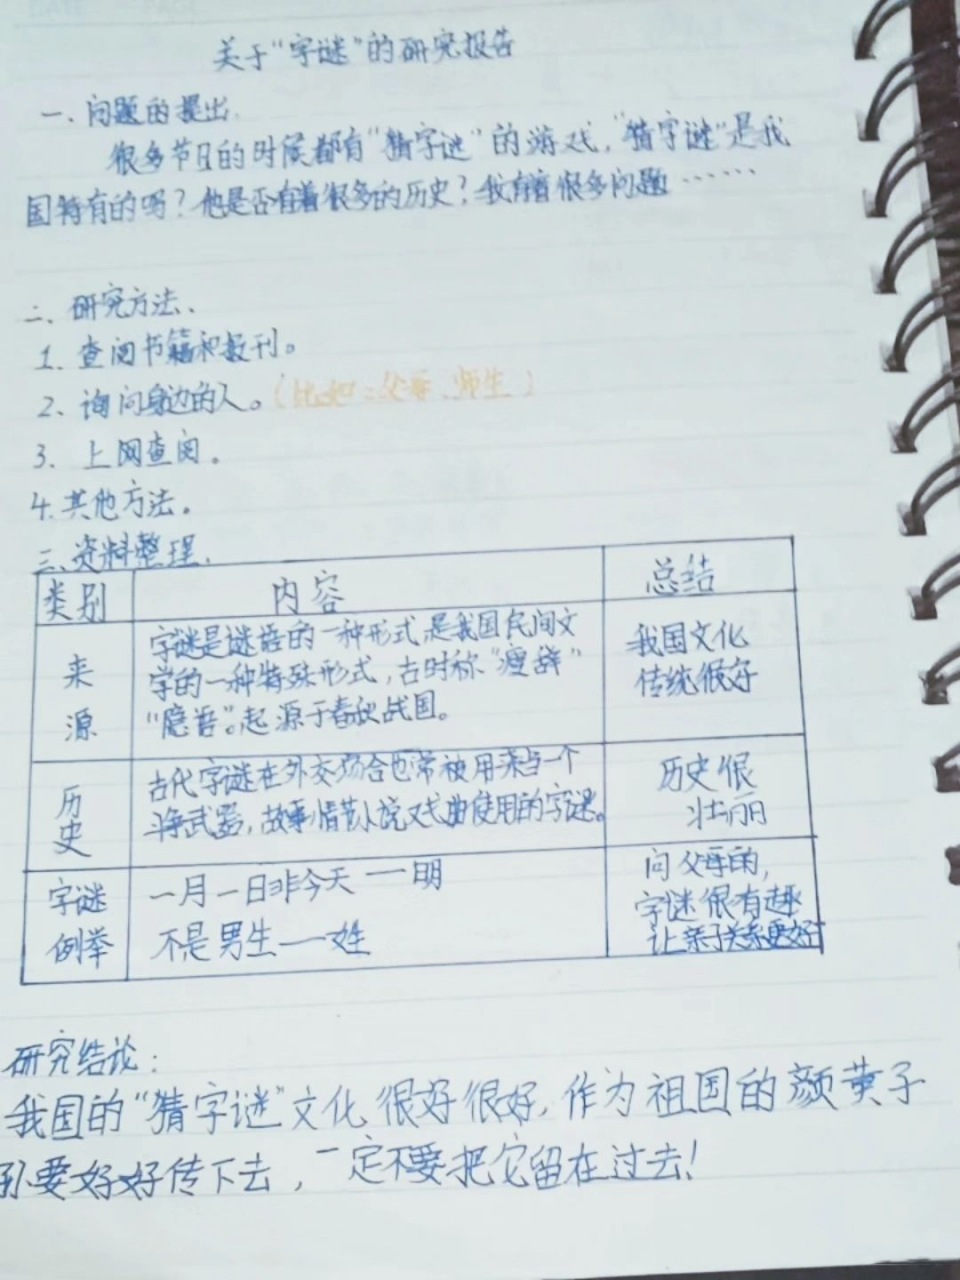 关于“字谜”的研究报告
一、问题的提出
很多节日的时候都有“猜字谜”的游戏,“猜字谜”是我
国特有的吗?他是否有着很多的历史?我有着很多问题……
二、研究方法、
1、查阅书籍和报刊。
2、询问身边的人。(比如:父母、师生)
3、上网查阅。
4.其他方法。
三、资料整理.
类别 内容 总结
来源 字谜是谜语的一种形式,是我国民间文
学的一种特殊形式,古时称“瘦辞”
“隐语”。起源于春秋战国。
我国文化
传统很好
历史 古代字谜在外交场合也常被用来当一个
斗争武器,故事情节小说戏曲使用的字谜。
历史很
壮丽
字谜
例举
一月一日非今天——明
不是男生——姓
问父母的,
字谜很有趣
让亲子关系更好
研究结论:
我国的“猜字谜”文化很好很好,作为祖国的颜黄子
孙要好好传下去,一定不要把它留在过去!